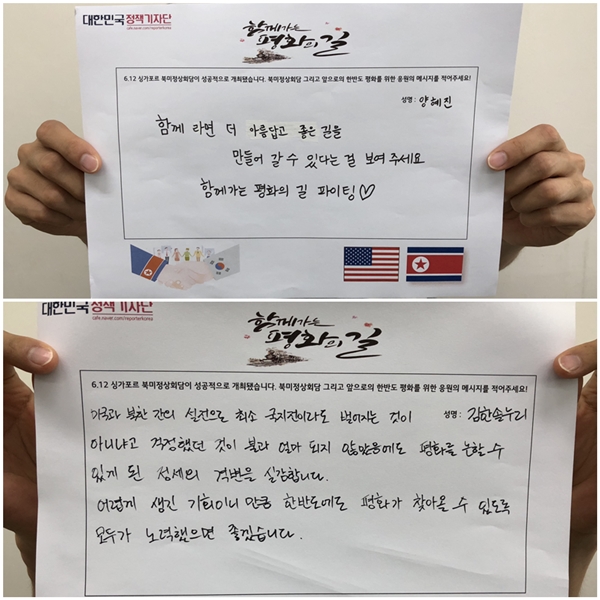 대한민국 정책기자단
cafe.naver.com/reporterkorea
함께가는
평화의 길
6.12 싱가포르 북미정상회담이 성공적으로 개최됐습니다. 북미정상회담 그리고 앞으로의 한반도 평화를 위한 응원의 메시지를 적어주세요!
성명 : 양혜진
함께 라면 더 아름답고 좋은 길을
만들어 갈 수 있다는 걸 보여 주세요
함께가는 평화의 길 파이팅♡
대한민국 정책기자단
cafe.naver.com/reporterkorea
함께가는
평화의 길
6.12 싱가포르 북미정상회담이 성공적으로 개최됐습니다. 북미정상회담 그리고 앞으로의 한반도 평화를 위한 응원의 메시지를 적어주세요!
성명 : 김한솔누리
미국과 북한 간의 설전으로 최소 국지전이라도 벌어지는 것이
아니냐고 걱정했던 것이 불과 얼마 되지 않았음에도 평화를 논할 수
있게 된 정세의 격변을 실감합니다.
어렵게 생긴 기회이니 만큼 한반도에도 평화가 찾아올 수 있도록
모두가 노력했으면 좋겠습니다.